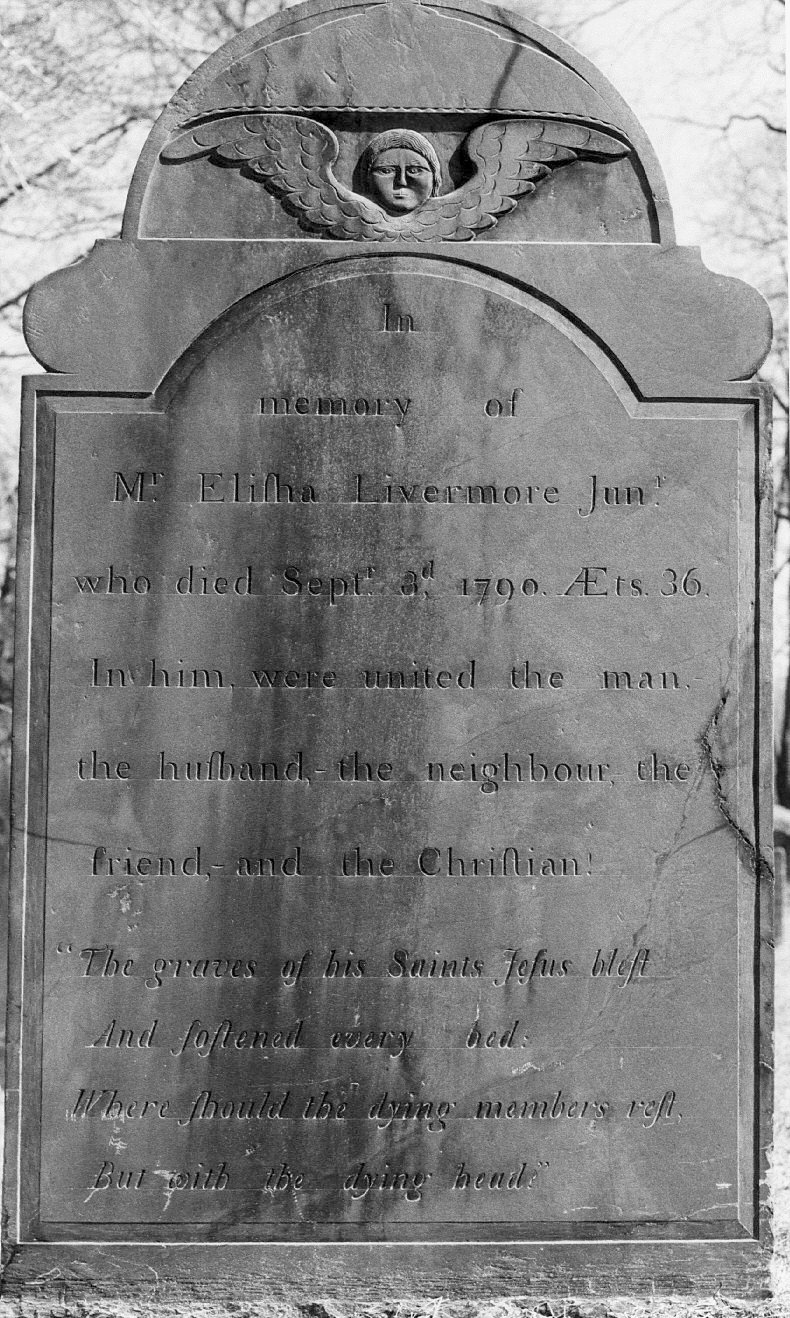 In
memory of
Mr. Eliſha Livermore Junr.
who died Septr. 3d, 1790. Æts. 36.
In him, were united the man,-
the huſband,- the neighbour, the
friend,- and the Chriſtian!
“The graves of his Saints Jeſus bleſt
And ſoftened every bed:
Where ſhould the dying members reſt,
But with the dying head?”